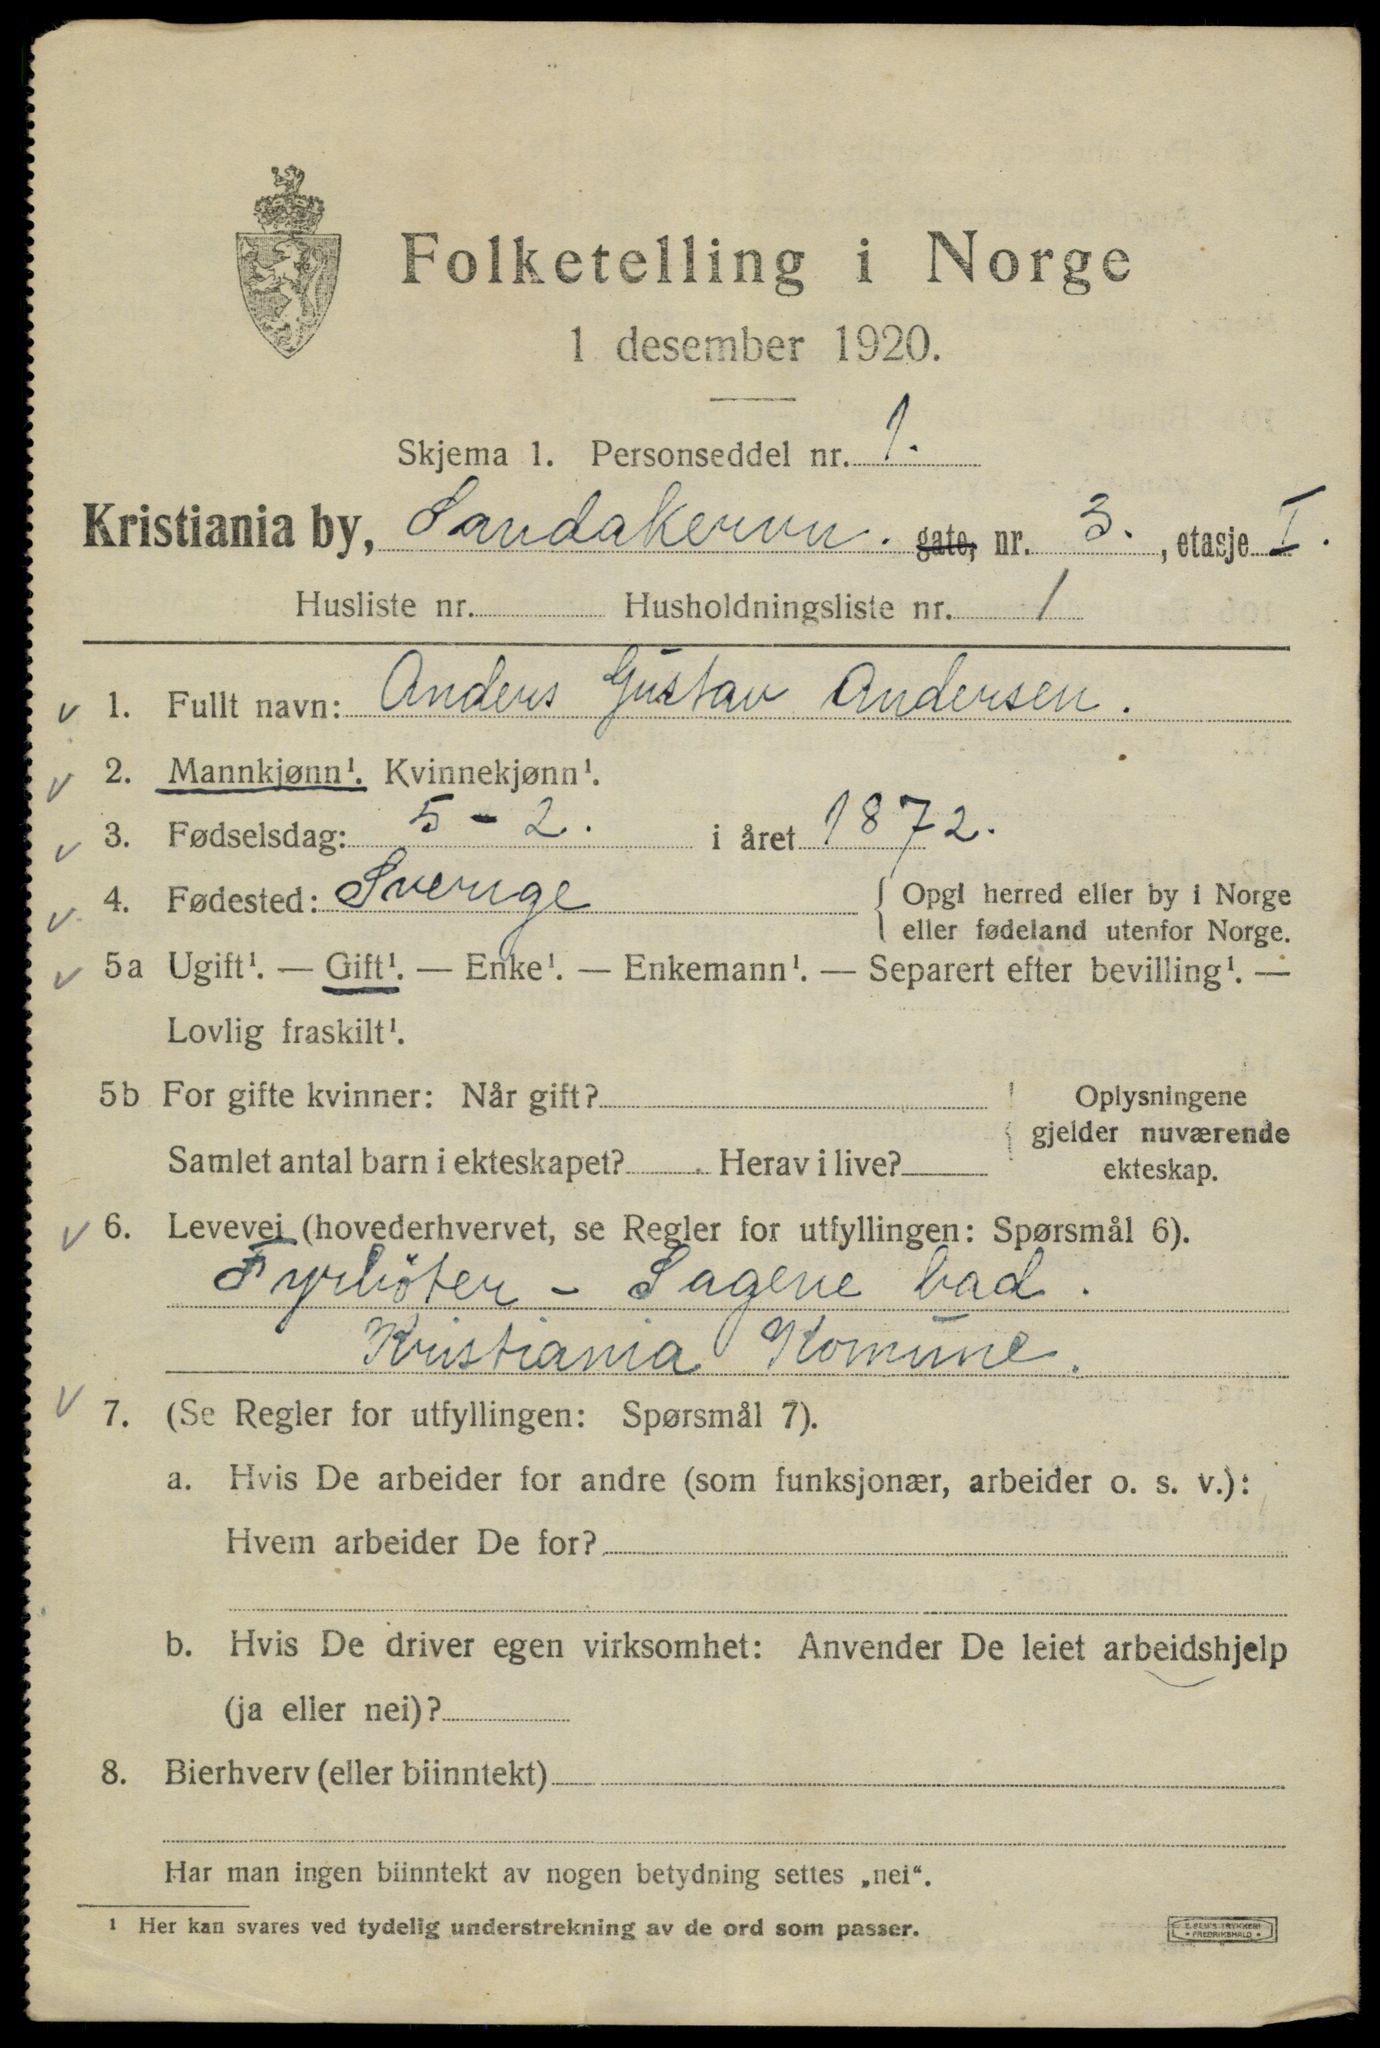 Folketelling i Norge
1 desember 1920.
Skjema 1. Personseddel nr. 1.
Kristiania by, Sandakervn. gate, nr. 3., etasje I.
Husliste nr. Husholdningsliste nr. 1
1. Fullt navn: Anders Gustav Andersen.
2. Mannkjønn¹. Kvinnekjønn¹.
3. Fødselsdag: 5 - 2. i året 1872.
4. Fødested: Sverige { Opgi herred eller by i Norge
eller fødeland utenfor Norge.
5a Ugift¹. — Gift¹. — Enke¹. — Enkemann¹. — Separert efter bevilling¹. —
Lovlig fraskilt¹.
5b For gifte kvinner: Når gift? Oplysningene
gjelder nuværende
Samlet antal barn i ekteskapet? Herav i live?
ekteskap.
6. Levevei (hovederhvervet, se Regler for utfyllingen: Spørsmål 6).
Fyrböter - Sagene bad.
Kristiania Komune.
7. (Se Regler for utfyllingen: Spørsmål 7).
a. Hvis De arbeider for andre (som funksjonær, arbeider o. s. v.):
Hvem arbeider De for?
b. Hvis De driver egen virksomhet: Anvender De leiet arbeidshjelp
(ja eller nei)?
8. Bierhverv (eller biinntekt)
Har man ingen biinntekt av nogen betydning settes „nei“.
¹ Her kan svares ved tydelig understrekning av de ord som passer.
E. SEM'S TRYKKERI
• FREDRIKSHALD •